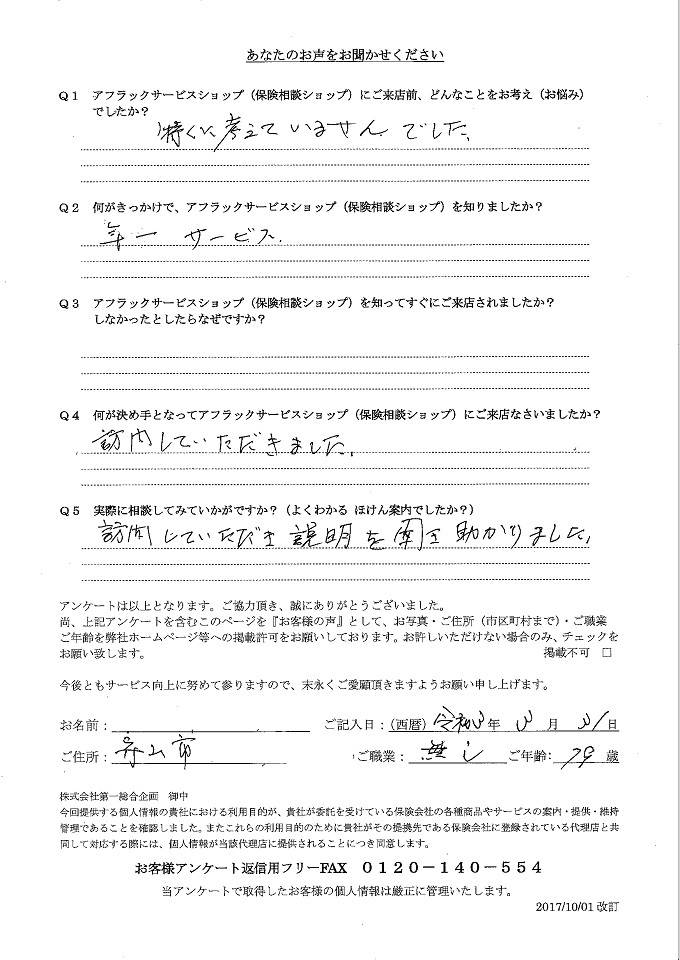 あなたのお声をお聞かせください
Q1 アフラックサービスショップ（保険相談ショップ）にご来店前、どんなことをお考え（お悩み）
でしたか？
特くに考えていませんでした。
Q2 何がきっかけで、アフラックサービスショップ（保険相談ショップ）を知りましたか？
年一 サービス.
Q3 アフラックサービスショップ（保険相談ショップ）を知ってすぐにご来店されましたか？
しなかったとしたらなぜですか？
Q4 何が決め手となってアフラックサービスショップ（保険相談ショップ）にご来店なさいましたか？
訪問していただきました。
Q5 実際に相談してみていかがですか？（よくわかる ほけん案内でしたか？）
訪問していただき説明を聞き助かりました。
アンケートは以上となります。ご協力頂き、誠にありがとうございました。
尚、上記アンケートを含むこのページを『お客様の声』として、お写真・ご住所（市区町村まで）・ご職業
ご年齢を弊社ホームページ等への掲載許可をお願いしております。お許しいただけない場合のみ、チェックを
お願い致します。 掲載不可 □
今後ともサービス向上に努めて参りますので、末永くご愛顧頂きますようお願い申し上げます。
お名前： ご記入日：（西暦）令和3年 3月 31日
ご住所： 市 ご職業：無し ご年齢：79歳
株式会社第一総合企画 御中
今回提供する個人情報の貴社における利用目的が、貴社が委託を受けている保険会社の各種商品やサービスの案内・提供・維持
管理であることを確認しました。またこれらの利用目的のために貴社がその提携先である保険会社に登録されている代理店と共
同して対応する際には、個人情報が当該代理店に提供されることにつき同意します。
お客様アンケート返信用フリーFAX 0120－140－554
当アンケートで取得したお客様の個人情報は厳正に管理いたします。
2017/10/01 改訂